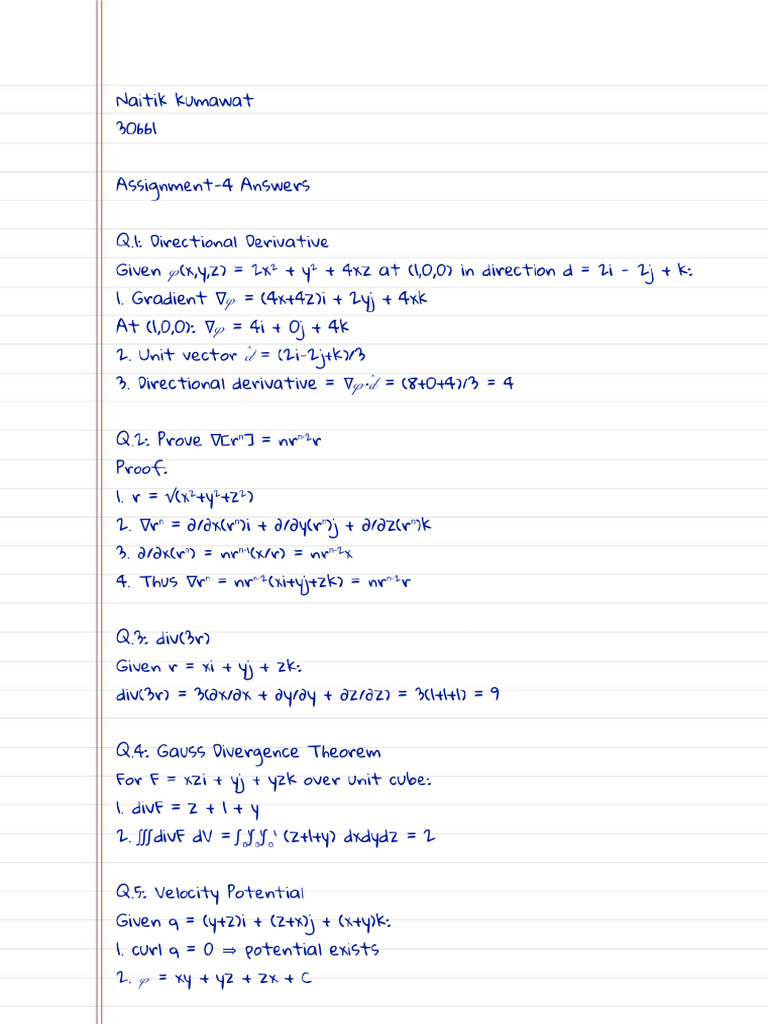 Naitik Kumawat
30661
Assignment-4 Answers
Q.1: Directional Derivative
Given φ(x,y,z) = 2x² + y² + 4xz at (1,0,0) in direction d = 2i - 2j + k:
1. Gradient ∇φ = (4x+4z)i + 2yj + 4xk
At (1,0,0): ∇φ = 4i + 0j + 4k
2. Unit vector d̂ = (2i-2j+k)/3
3. Directional derivative = ∇φ·d̂ = (8+0+4)/3 = 4
Q.2: Prove ∇[rⁿ] = nrⁿ⁻²r
Proof:
1. r = √(x²+y²+z²)
2. ∇rⁿ = ∂/∂x(rⁿ)i + ∂/∂y(rⁿ)j + ∂/∂z(rⁿ)k
3. ∂/∂x(rⁿ) = nrⁿ⁻¹(x/r) = nrⁿ⁻²x
4. Thus ∇rⁿ = nrⁿ⁻²(xi+yj+zk) = nrⁿ⁻²r
Q.3: div(3r)
Given r = xi + yj + zk:
div(3r) = 3(∂x/∂x + ∂y/∂y + ∂z/∂z) = 3(1+1+1) = 9
Q.4: Gauss Divergence Theorem
For F = xzi + yj + yzk over unit cube:
1. divF = z + 1 + y
2. ∭divF dV = ∫₀¹∫₀¹∫₀¹ (z+1+y) dxdydz = 2
Q.5: Velocity Potential
Given q = (y+z)i + (z+x)j + (x+y)k:
1. curl q = 0 ⇒ potential exists
2. φ = xy + yz + zx + C